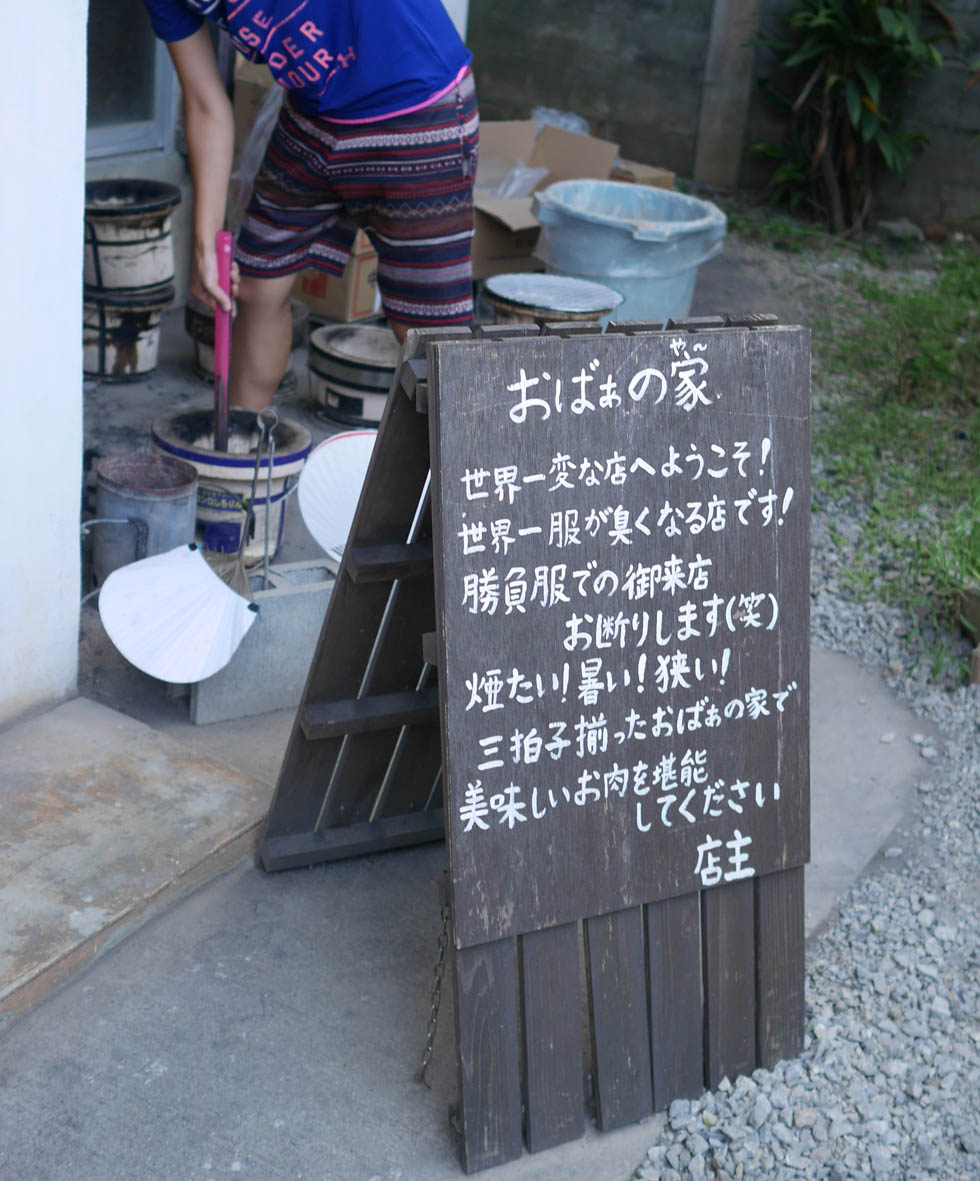 おばぁの家
やー
世界一変な店へようこそ!
世界一服が臭くなる店です!
勝負服での御来店
お断りします(笑)
煙たい!暑い!狭い!
三拍子揃ったおばぁの家で
美味しいお肉を堪能
してください
店主